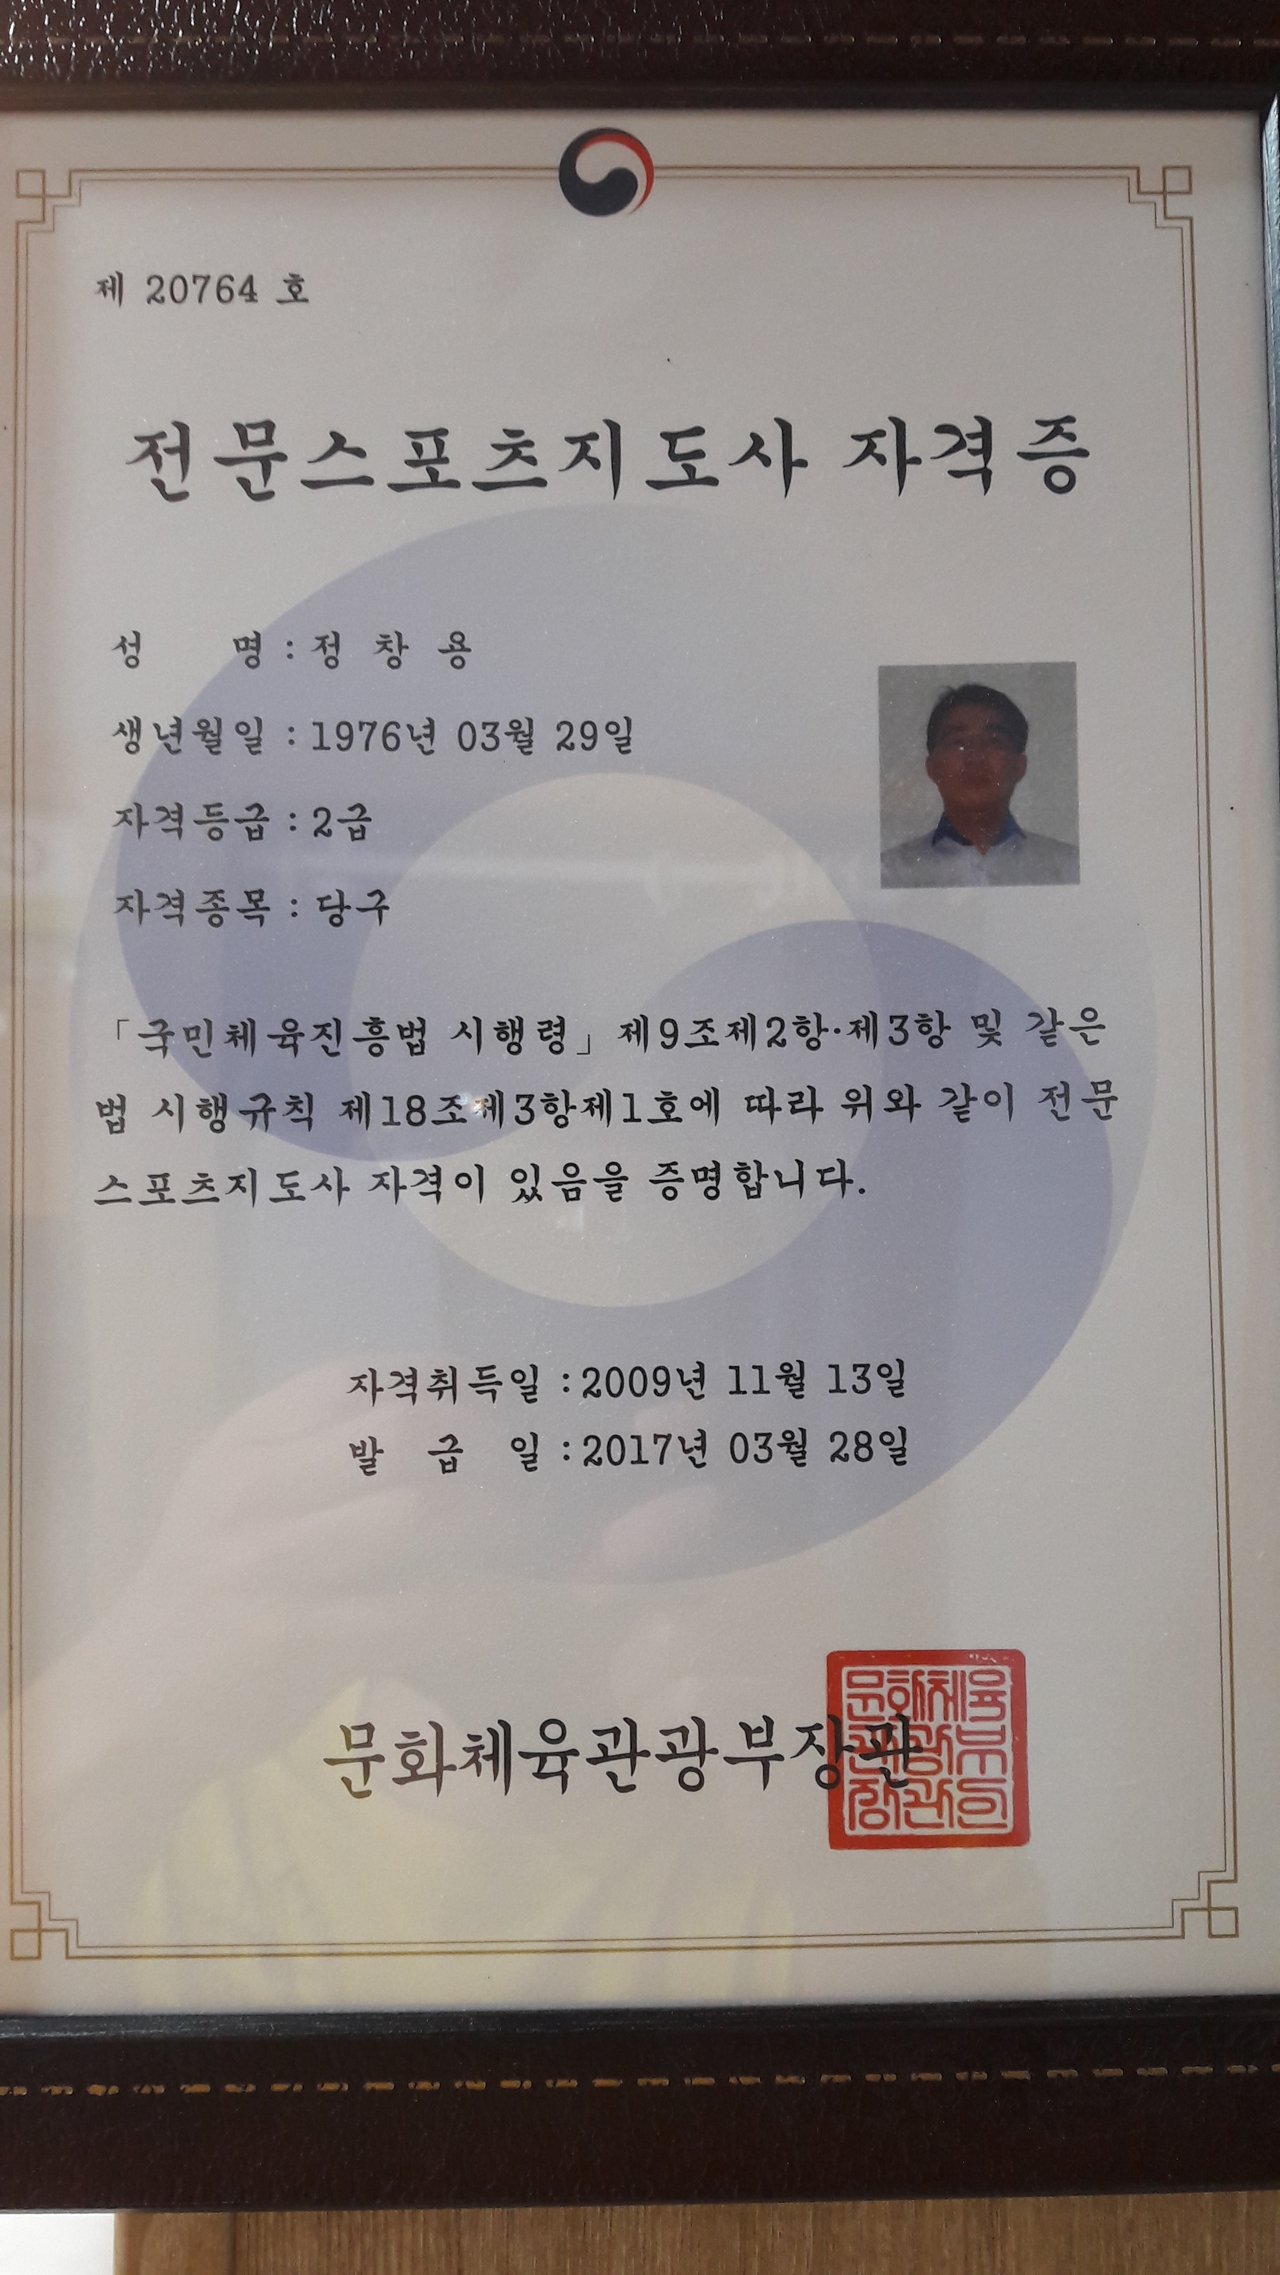 제 20764 호
전문스포츠지도사 자격증
성 명 : 정 창 용
생년월일 : 1976년 03월 29일
자격등급 : 2급
자격종목 : 당구
「국민체육진흥법 시행령」 제9조제2항·제3항 및 같은
법 시행규칙 제18조제3항제1호에 따라 위와 같이 전문
스포츠지도사 자격이 있음을 증명합니다.
자격취득일 : 2009년 11월 13일
발 급 일 : 2017년 03월 28일
문화체육관광부장관
문화체육
관광부
장관인